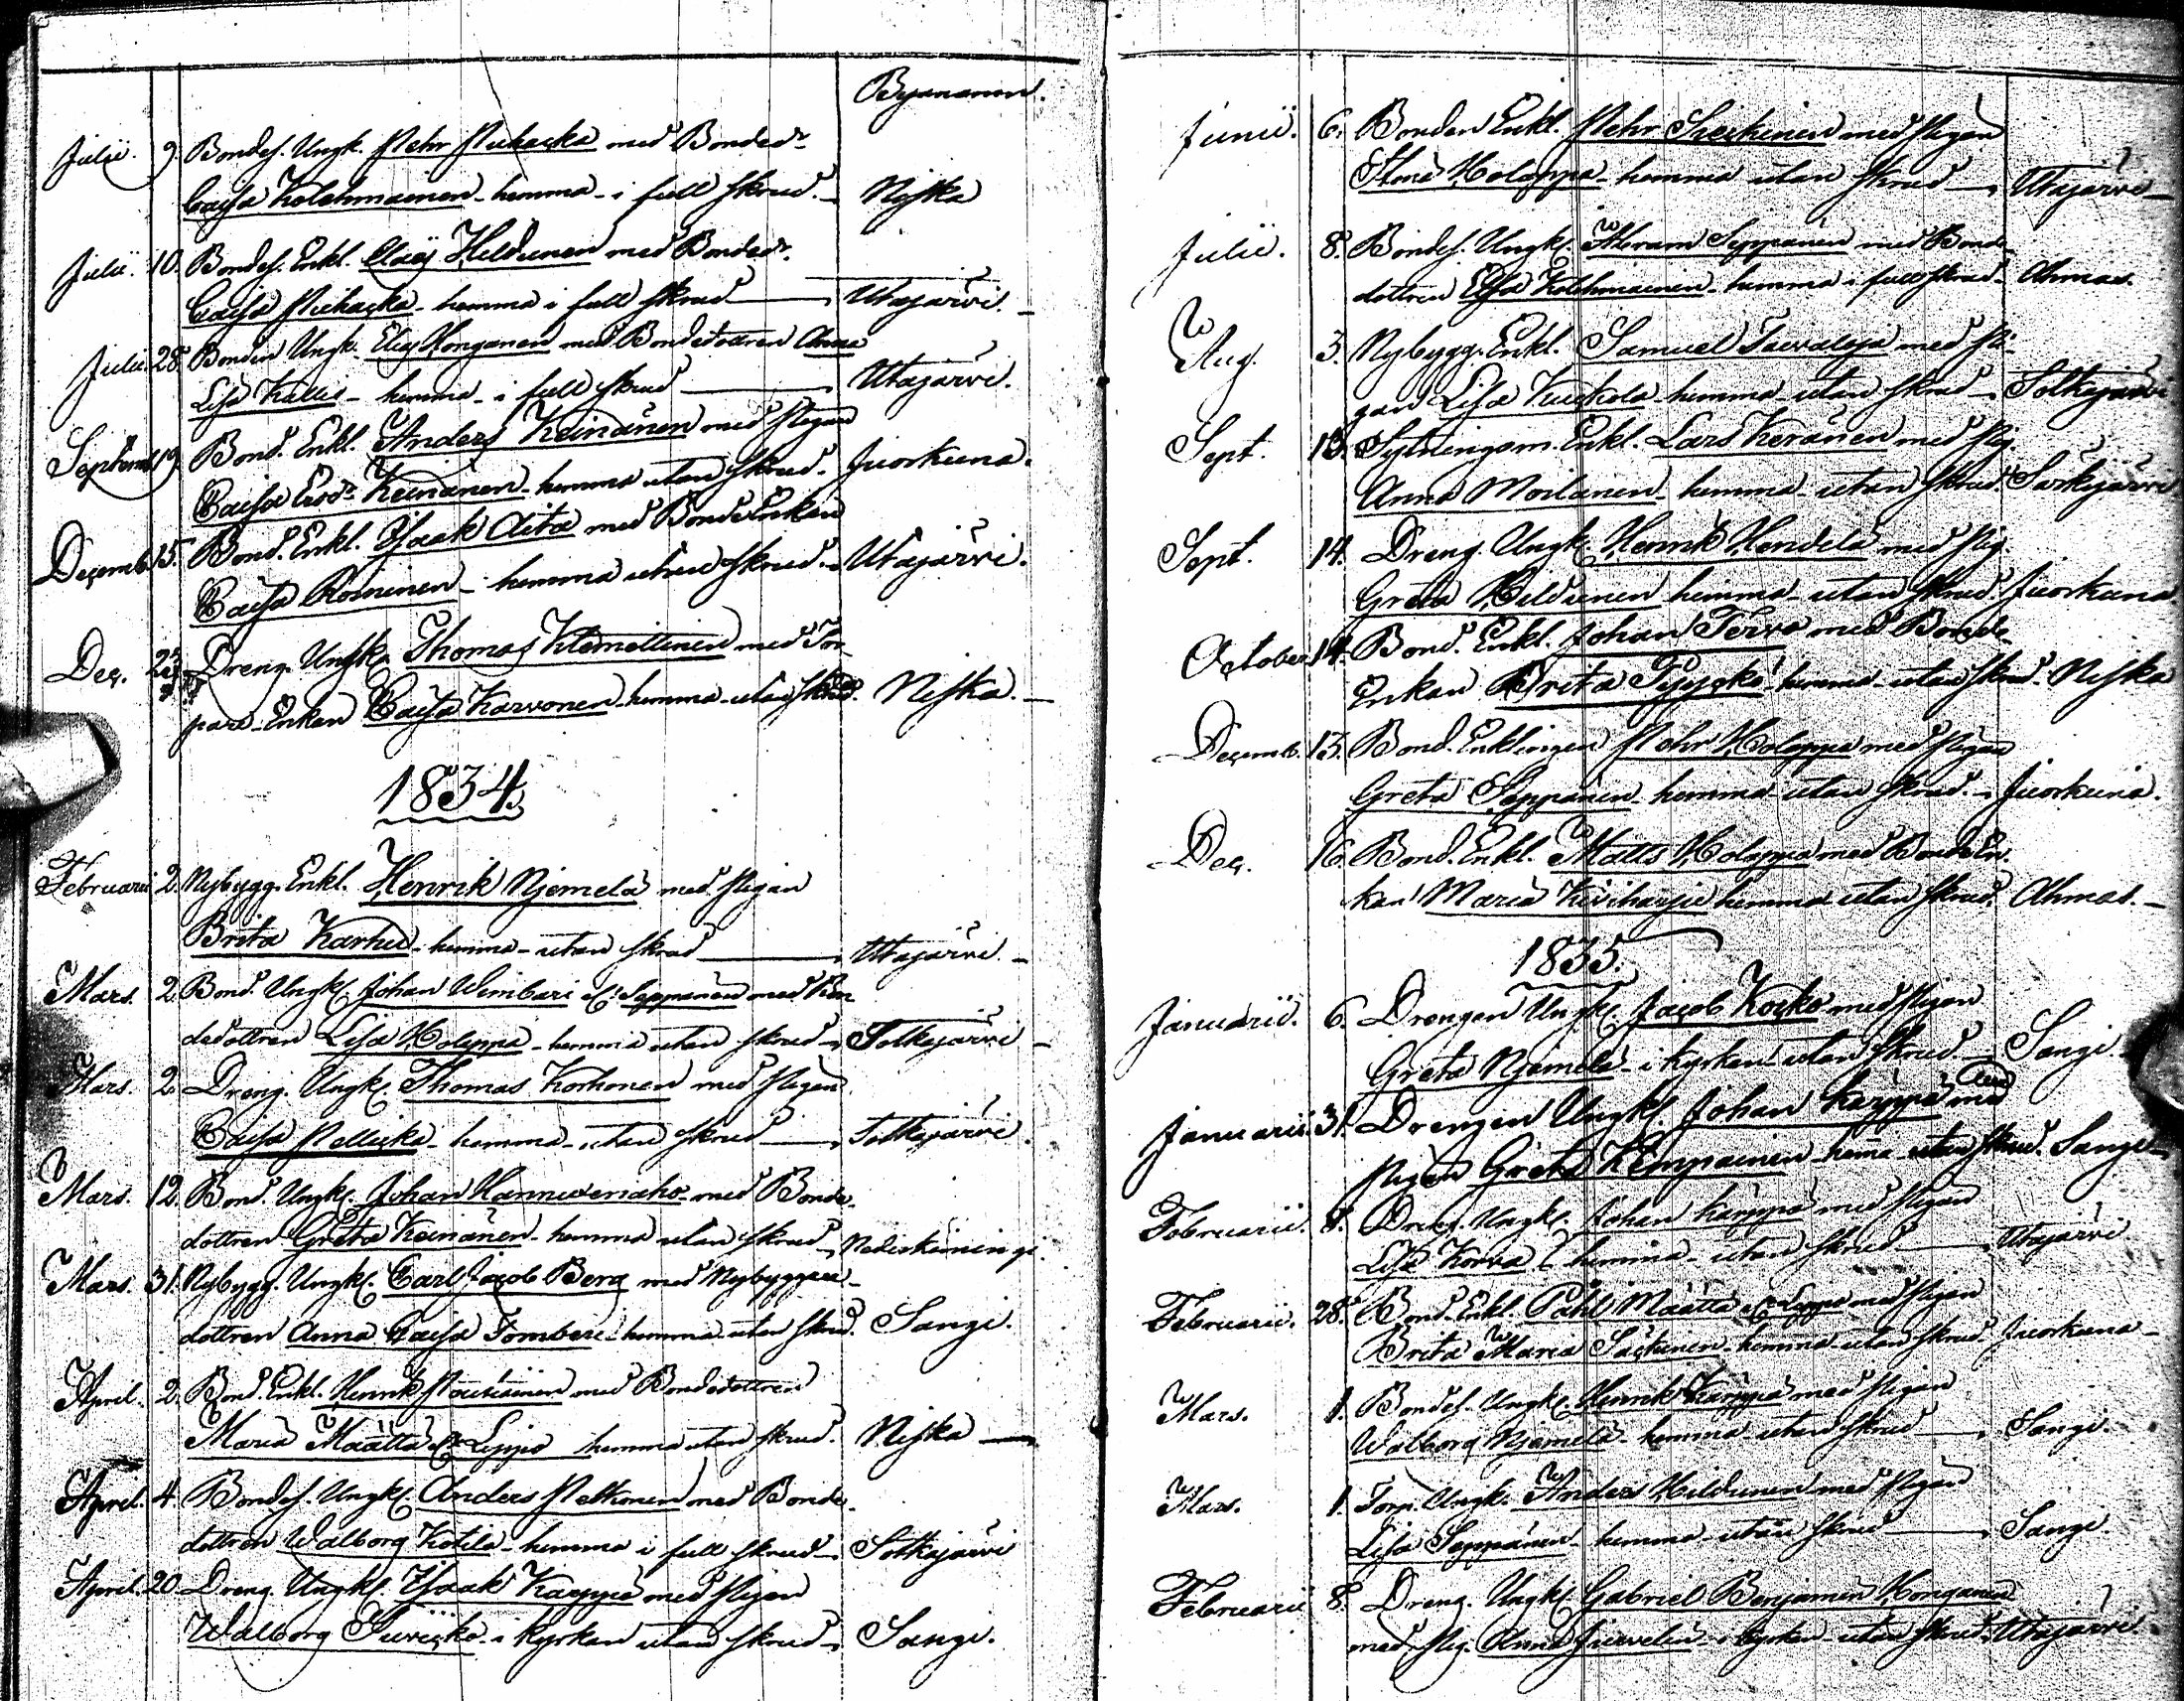 Byanamn.
Julii. 9. Bondes. Ungk. Pehr Pichacka med Bondedr
Caisa Kolehmainen hemma i full skrud. Niska
Julii. 10. Bondes. Enkl. Claës Heldunen med Bondedr.
Caisa Pichacka hemma i full skrud Utajärvi.
Julii. 28. Bonden Ungk. Elias Honganen med Bondedottren Anna
Lisa Kallio hemma i full skrud Utajärvi.
Septemb. 19. Bond. Enkl. Anders Keinänen med Pigan
Caisa Keinänen hemma utan skrud. Juorkuna.
Decemb. 15. Bond. Enkl. Isaak Aita med Bonde Enkan
Caisa Roininen hemma utan skrud. Utajärvi.
Dec. Dreng. Ungk. Thomas Klemettinen med Tor
pare Enkan Caisa Karvonen hemma utan skrud. Niska.
1834.
Februarii 2. Nybygg. Enkl. Henrik Njemelä med Pigan
Brita Karhu hemma utan skrud Utajärvi.
Mars. 2. Bond. Ungk. Johan Wimbari el. Seppänen med Bon
dedottren Lisa Holappa hemma utan skrud Sotkajärvi
Mars. 2. Dreng. Ungk. Thomas Korhonen med Pigan
Caisa Pellicka hemma utan skrud Sotkajärvi.
Mars. 12. Bond. Ungk. Johan Hannuxenaho med Bonde
dottren Greta Keinänen hemma utan skrud Nediskiminingi.
Mars. 31. Nybygg. Ungk. Carl Jacob Berg med Nybyggare
dottren Anna Caisa Tomberi hemma utan skrud. Sangi.
April. 2. Bond. Enkl. Henrik Poutiainen med Bondedottren
Maria Määttä el. Leppä hemma utan skrud. Niska
April. 4. Bondes. Ungk. Anders Peltonen med Bonde
dottren Walborg Kotila hemma i full skrud Sotkajärvi
April. 20. Dreng. Ungk. Isaak Karppa med Pigan
Walborg i kyrkan utan skrud Sangi.
Junii. 6. Bonden Enkl. Pehr med Pigan
Holappa hemma utan skrud Utajärvi
Julii. 8. Bondes. Ungk. Abram Seppänen med Bonde
dottren Elsa Kolehmainen hemma i full skrud Ahmas.
Aug. 3. Nybygg. Enkl. Samuel med Pi
gan Lisa Kuckola hemma utan skrud Sotkajärvi
Sept. 13. Sytningsm. Enkl. Lars Keränen med Pig.
Anna Moilanen hemma utan skrud. Särkijärvi
Sept. 14. Dreng. Ungk. Henrik Hendelä med Pig.
Greta Heldunen hemma utan skrud. Juorkuna
October 14. Bond. Enkl. Johan Terva med Bonde
Enkan Brita hemma utan skrud. Niska
Decemb. 13. Bond. Enklingen Pehr Holappa med Pigan
Greta Seppänen hemma utan skrud. Juorkuna.
Dec. 16. Bond. Enkl. Matts Holappa med Bonde En
kan Maria Kiviharju hemma utan skrud. Ahmas.
1835.
Januarii. 6. Drengen Ungk. Jacob Kocko med Pigan
Greta Njemelä i kyrkan utan skrud Sangi.
Januarii. 31. Drengen Ungk. Johan Karppa med
Pigan Greta Kemppainen hemma utan skrud. Sangi
Februarii. 8. Dreng. Ungk. Johan Karppa med Pigan
Lisa Korva hemma utan skrud Utajärvi.
Februarii. 28. Bond. Enkl. Påhl Määttä el. Leppä med Pigan
Brita Maria hemma utan skrud. Juorkuna
Mars. 1. Bondes. Ungk. Henrik Karppa med Pigan
Walborg Njemelä hemma utan skrud Sangi.
Mars. 1. Torp. Ungk. Anders Heldunen med Pigan
Lisa Seppänen hemma utan skrud Sangi.
Februarii 8. Dreng. Ungk. Gabriel Benjamin Honganen
med Pig. Anna Juvelin i kyrkan utan skrud Utajärvi.